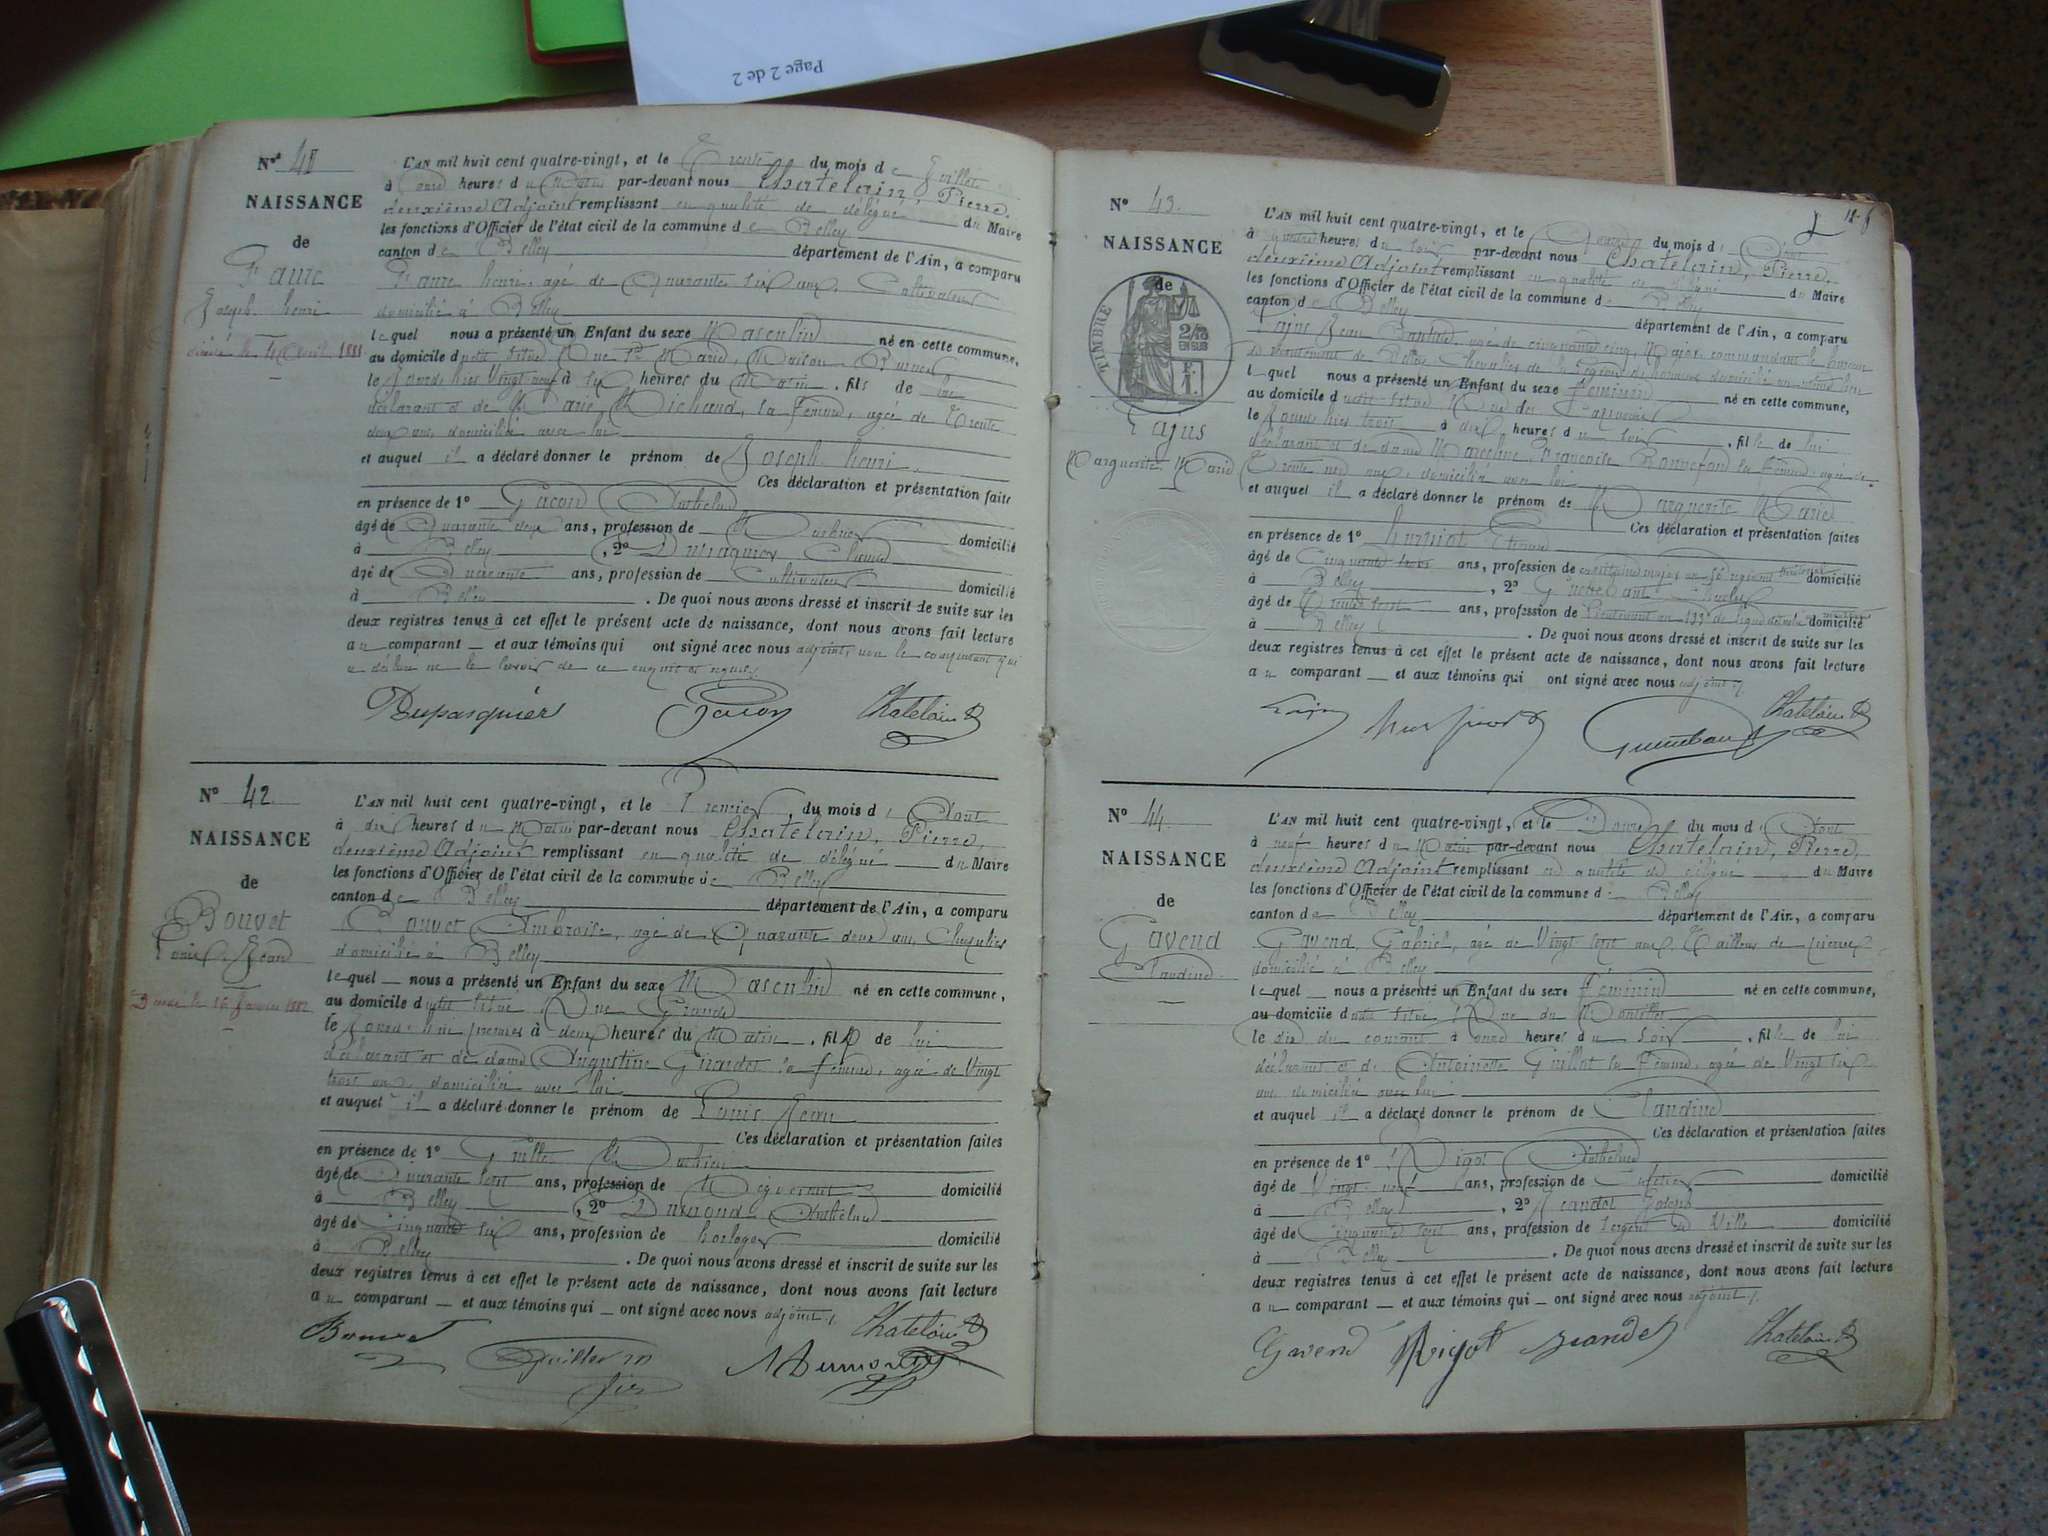 Page 2 de 2
Nº 41
NAISSANCE
de
Faure
Joseph henri
L'AN mil huit cent quatre-vingt, et le Trente du mois de Juillet
à onze heures du Matin par-devant nous Chatelain, Pierre,
deuxième Adjoint remplissant en qualité de délégué du Maire
les fonctions d'Officier de l'état civil de la commune de Belley
canton de Belley département de l'Ain, a comparu
Faure henri, agé de Quarante six ans, Cultivateur
domicilié à Belley
lequel nous a présenté un Enfant du sexe Masculin né en cette commune,
au domicile
le jour d'hier Vingt neuf à six heures du Matin, fils de lui
déclarant et de Marie Michaud, sa femme, agée de Trente
deux ans, domiciliée avec lui
et auquel il a déclaré donner le prénom de Joseph henri
Ces déclaration et présentation faites
en présence de 1º Gacon Anthelme
âgé de Quarante deux ans, profession de domicilié
à Belley, 2º Dupasquier Claude
âgé de Quarante ans, profession de Cultivateur domicilié
à Belley. De quoi nous avons dressé et inscrit de suite sur les
deux registres tenus à cet effet le présent acte de naissance, dont nous avons fait lecture
au comparant et aux témoins qui ont signé avec nous adjoint, non le comparant qui
a déclaré ne le savoir de ce enquis et requis.
Dupasquier Gacon Chatelain P
Nº 42
NAISSANCE
de
Bouvet
Louis Jean
Décédé le 16 Janvier 1882
L'AN mil huit cent quatre-vingt, et le Premier, du mois d'Aout
à dix heures du Matin par-devant nous Chatelain, Pierre,
deuxième Adjoint remplissant en qualité de délégué du Maire
les fonctions d'Officier de l'état civil de la commune de Belley
canton de Belley département de l'Ain, a comparu
Bouvet Ambroise, agé de Quarante deux ans,
domicilié à Belley
lequel nous a présenté un Enfant du sexe Masculin né en cette commune,
au domicile dudit situé Rue Grande
le jourd'hui premier à deux heures du Matin, fils de lui
déclarant et de dame Augustine Girardot sa femme, agée de Vingt
trois ans, domiciliée avec lui
et auquel il a déclaré donner le prénom de Louis Jean
Ces déclaration et présentation faites
en présence de 1º Mathieu
âgé de Quarante sept ans, profession de domicilié
à Belley, 2º Dumond Anthelme
âgé de Cinquante six ans, profession de horloger domicilié
à Belley. De quoi nous avons dressé et inscrit de suite sur les
deux registres tenus à cet effet le présent acte de naissance, dont nous avons fait lecture
au comparant et aux témoins qui ont signé avec nous adjoint.
Bouvet Chatelain P
Nº 43
NAISSANCE
de
TIMBRE
2/10
EN SUS
Lajus
Marguerite Marie
L'AN mil huit cent quatre-vingt, et le du mois d'Aout
à quatre heures du soir par-devant nous Chatelain, Pierre,
deuxième Adjoint remplissant en qualité de délégué du Maire
les fonctions d'Officier de l'état civil de la commune de Belley
canton de Belley département de l'Ain, a comparu
Lajus Jean agé de cinquante cinq, Major commandant le bureau
de recrutement de Belley, Chevalier de la Légion d'honneur domicilié au même lieu
lequel nous a présenté un Enfant du sexe féminin né en cette commune,
au domicile dudit situé Rue des
le jour d'hier trois à dix heures du soir, fille de lui
déclarant et de dame Marceline Françoise Bonnefon sa femme, agée de
Trente neuf ans, domiciliée avec lui
et auquel il a déclaré donner le prénom de Marguerite Marie
Ces déclaration et présentation faites
en présence de 1º Etienne
âgé de Cinquante trois ans, profession de domicilié
à Belley, 2º
âgé de Trente sept ans, profession de Lieutenant au 133e de ligne domicilié
à Belley. De quoi nous avons dressé et inscrit de suite sur les
deux registres tenus à cet effet le présent acte de naissance, dont nous avons fait lecture
au comparant et aux témoins qui ont signé avec nous adjoint.
Lajus Chatelain P
Nº 44
NAISSANCE
de
Gavend
Claudine
L'AN mil huit cent quatre-vingt, et le Douze du mois d'Aout
à neuf heures du Matin par-devant nous Chatelain, Pierre,
deuxième Adjoint remplissant en qualité de délégué du Maire
les fonctions d'Officier de l'état civil de la commune de Belley
canton de Belley département de l'Ain, a comparu
Gavend, Gabriel, agé de Vingt sept ans, Tailleur de pierres
domicilié à Belley
lequel nous a présenté un Enfant du sexe féminin né en cette commune,
au domicile dudit situé Rue du
le dix du courant à onze heures du soir, fille de lui
déclarant et de Antoinette Guillot sa femme, agée de Vingt six
ans domiciliée avec lui
et auquel il a déclaré donner le prénom de Claudine
Ces déclaration et présentation faites
en présence de 1º Rigot Anthelme
âgé de Vingt neuf ans, profession de domicilié
à Belley, 2º Jeandet Joseph
âgé de Cinquante sept ans, profession de Sergent de Ville domicilié
à Belley. De quoi nous avons dressé et inscrit de suite sur les
deux registres tenus à cet effet le présent acte de naissance, dont nous avons fait lecture
au comparant et aux témoins qui ont signé avec nous adjoint.
Gavend Rigot Jeandet Chatelain P